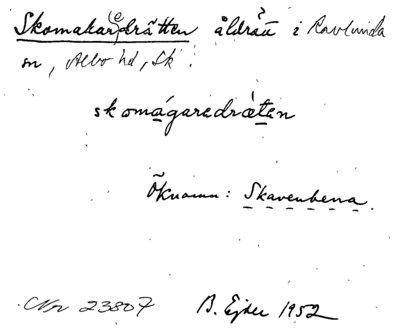 Skomakar(e)drätten åldrätt i Ravlunda
sn, Albo hd, Sk.
skomágaredrætan
Öknamn: Skavenbena.
Nr 23807 B. Ejder 1952